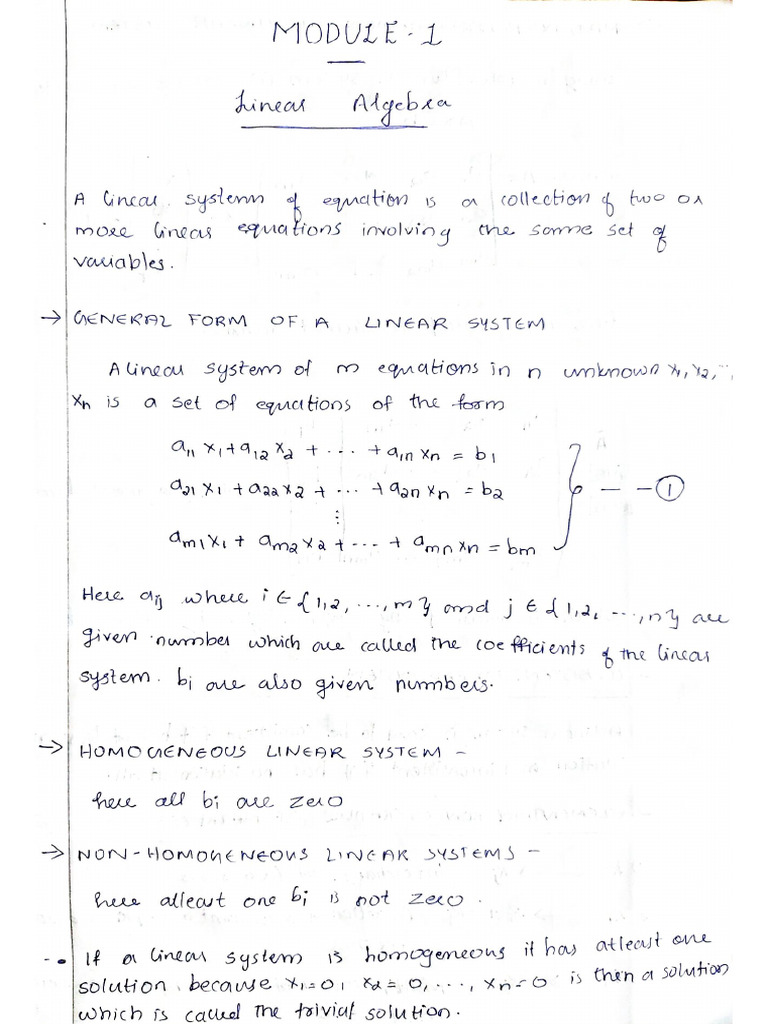 MODULE-1
Linear Algebra
A linear system of equation is a collection of two or
more linear equations involving the same set of
variables.
→ GENERAL FORM OF A LINEAR SYSTEM
A linear system of m equations in n unknown x₁, x₂, ..,
xₙ is a set of equations of the form
a₁₁x₁ + a₁₂x₂ + ... + a₁ₙxₙ = b₁
a₂₁x₁ + a₂₂x₂ + ... + a₂ₙxₙ = b₂ } — — ①
⋮
aₘ₁x₁ + aₘ₂x₂ + ... + aₘₙxₙ = bm
Here aᵢⱼ where i ∈ {1,2, ..., m} and j ∈ {1,2, ..., n} are
given number which are called the coefficients of the linear
system. bᵢ are also given numbers.
→ HOMOGENEOUS LINEAR SYSTEM -
here all bᵢ are zero
→ NON-HOMOGENEOUS LINEAR SYSTEMS -
here atleast one bᵢ is not zero.
-• If a linear system is homogeneous it has atleast one
solution, because x₁=0, x₂=0, ..., xₙ=0 is then a solution
which is called the trivial solution.